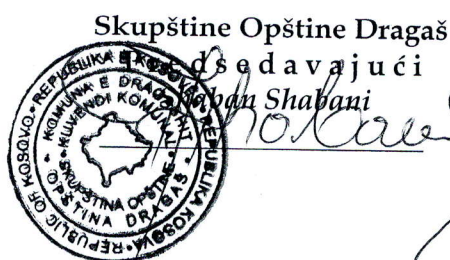 Skupštine Opštine Dragaš
P r e d s e d a v a j u ć i
Shabani
REPUBLIKA E KOSOVËS • REPUBLIKA KOSOVA • REPUBLIC OF KOSOVO •
KOMUNA E DRAGASHIT
KUVENDI KOMUNAL
SKUPŠTINA OPŠTINE
OPŠTINA DRAGAŠ